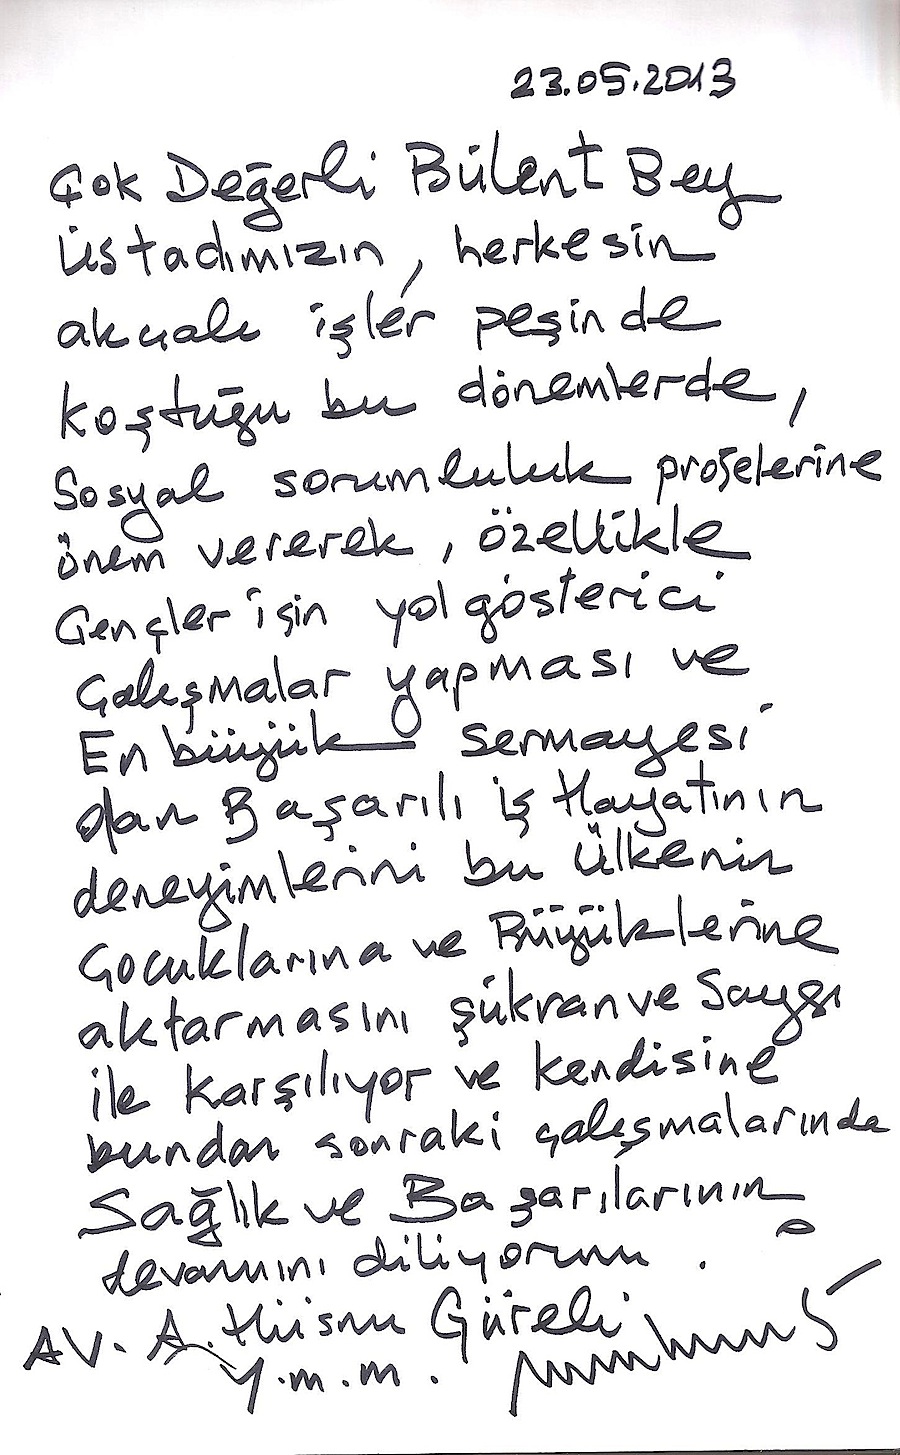 23.05.2013
Çok Değerli Bülent Bey
Üstadımızın, herkesin
akçalı işler peşinde
koştuğu bu dönemlerde,
Sosyal sorumluluk projelerine
önem vererek, özellikle
Gençler için yol gösterici
Çalışmalar yapması ve
En büyük sermayesi
olan Başarılı İş Hayatının
deneyimlerini bu Ülkenin
Çocuklarına ve Büyüklerine
aktarmasını şükran ve Saygı
ile karşılıyor ve kendisine
bundan sonraki çalışmalarında
Sağlık ve Başarılarının
devamını diliyorum.
AV. A. Hüsnü Güreli
Y.m.m.